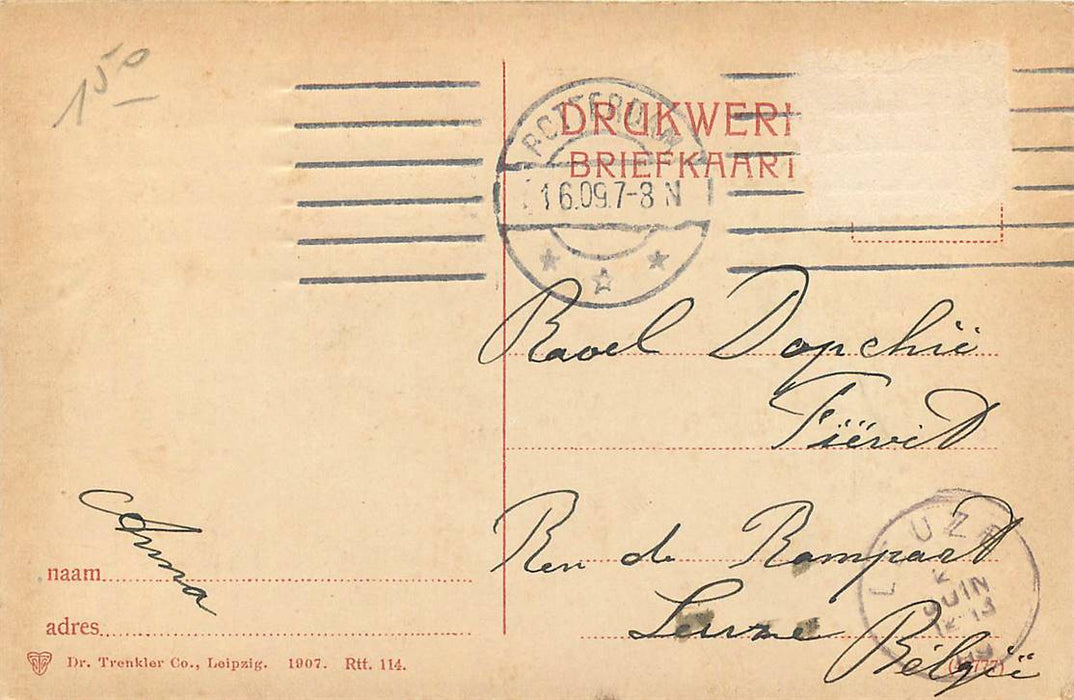 150
DRUKWERK
BRIEFKAART
ROTTERDAM
1 6.09.7-8 N
Raoel Dopchië
Tiëvit
Ren de Rempart
Leuze
België
LEUZE
2
JUIN
12-13
09
Anna
naam
adres
Dr. Trenkler Co., Leipzig. 1907. Rtt. 114.